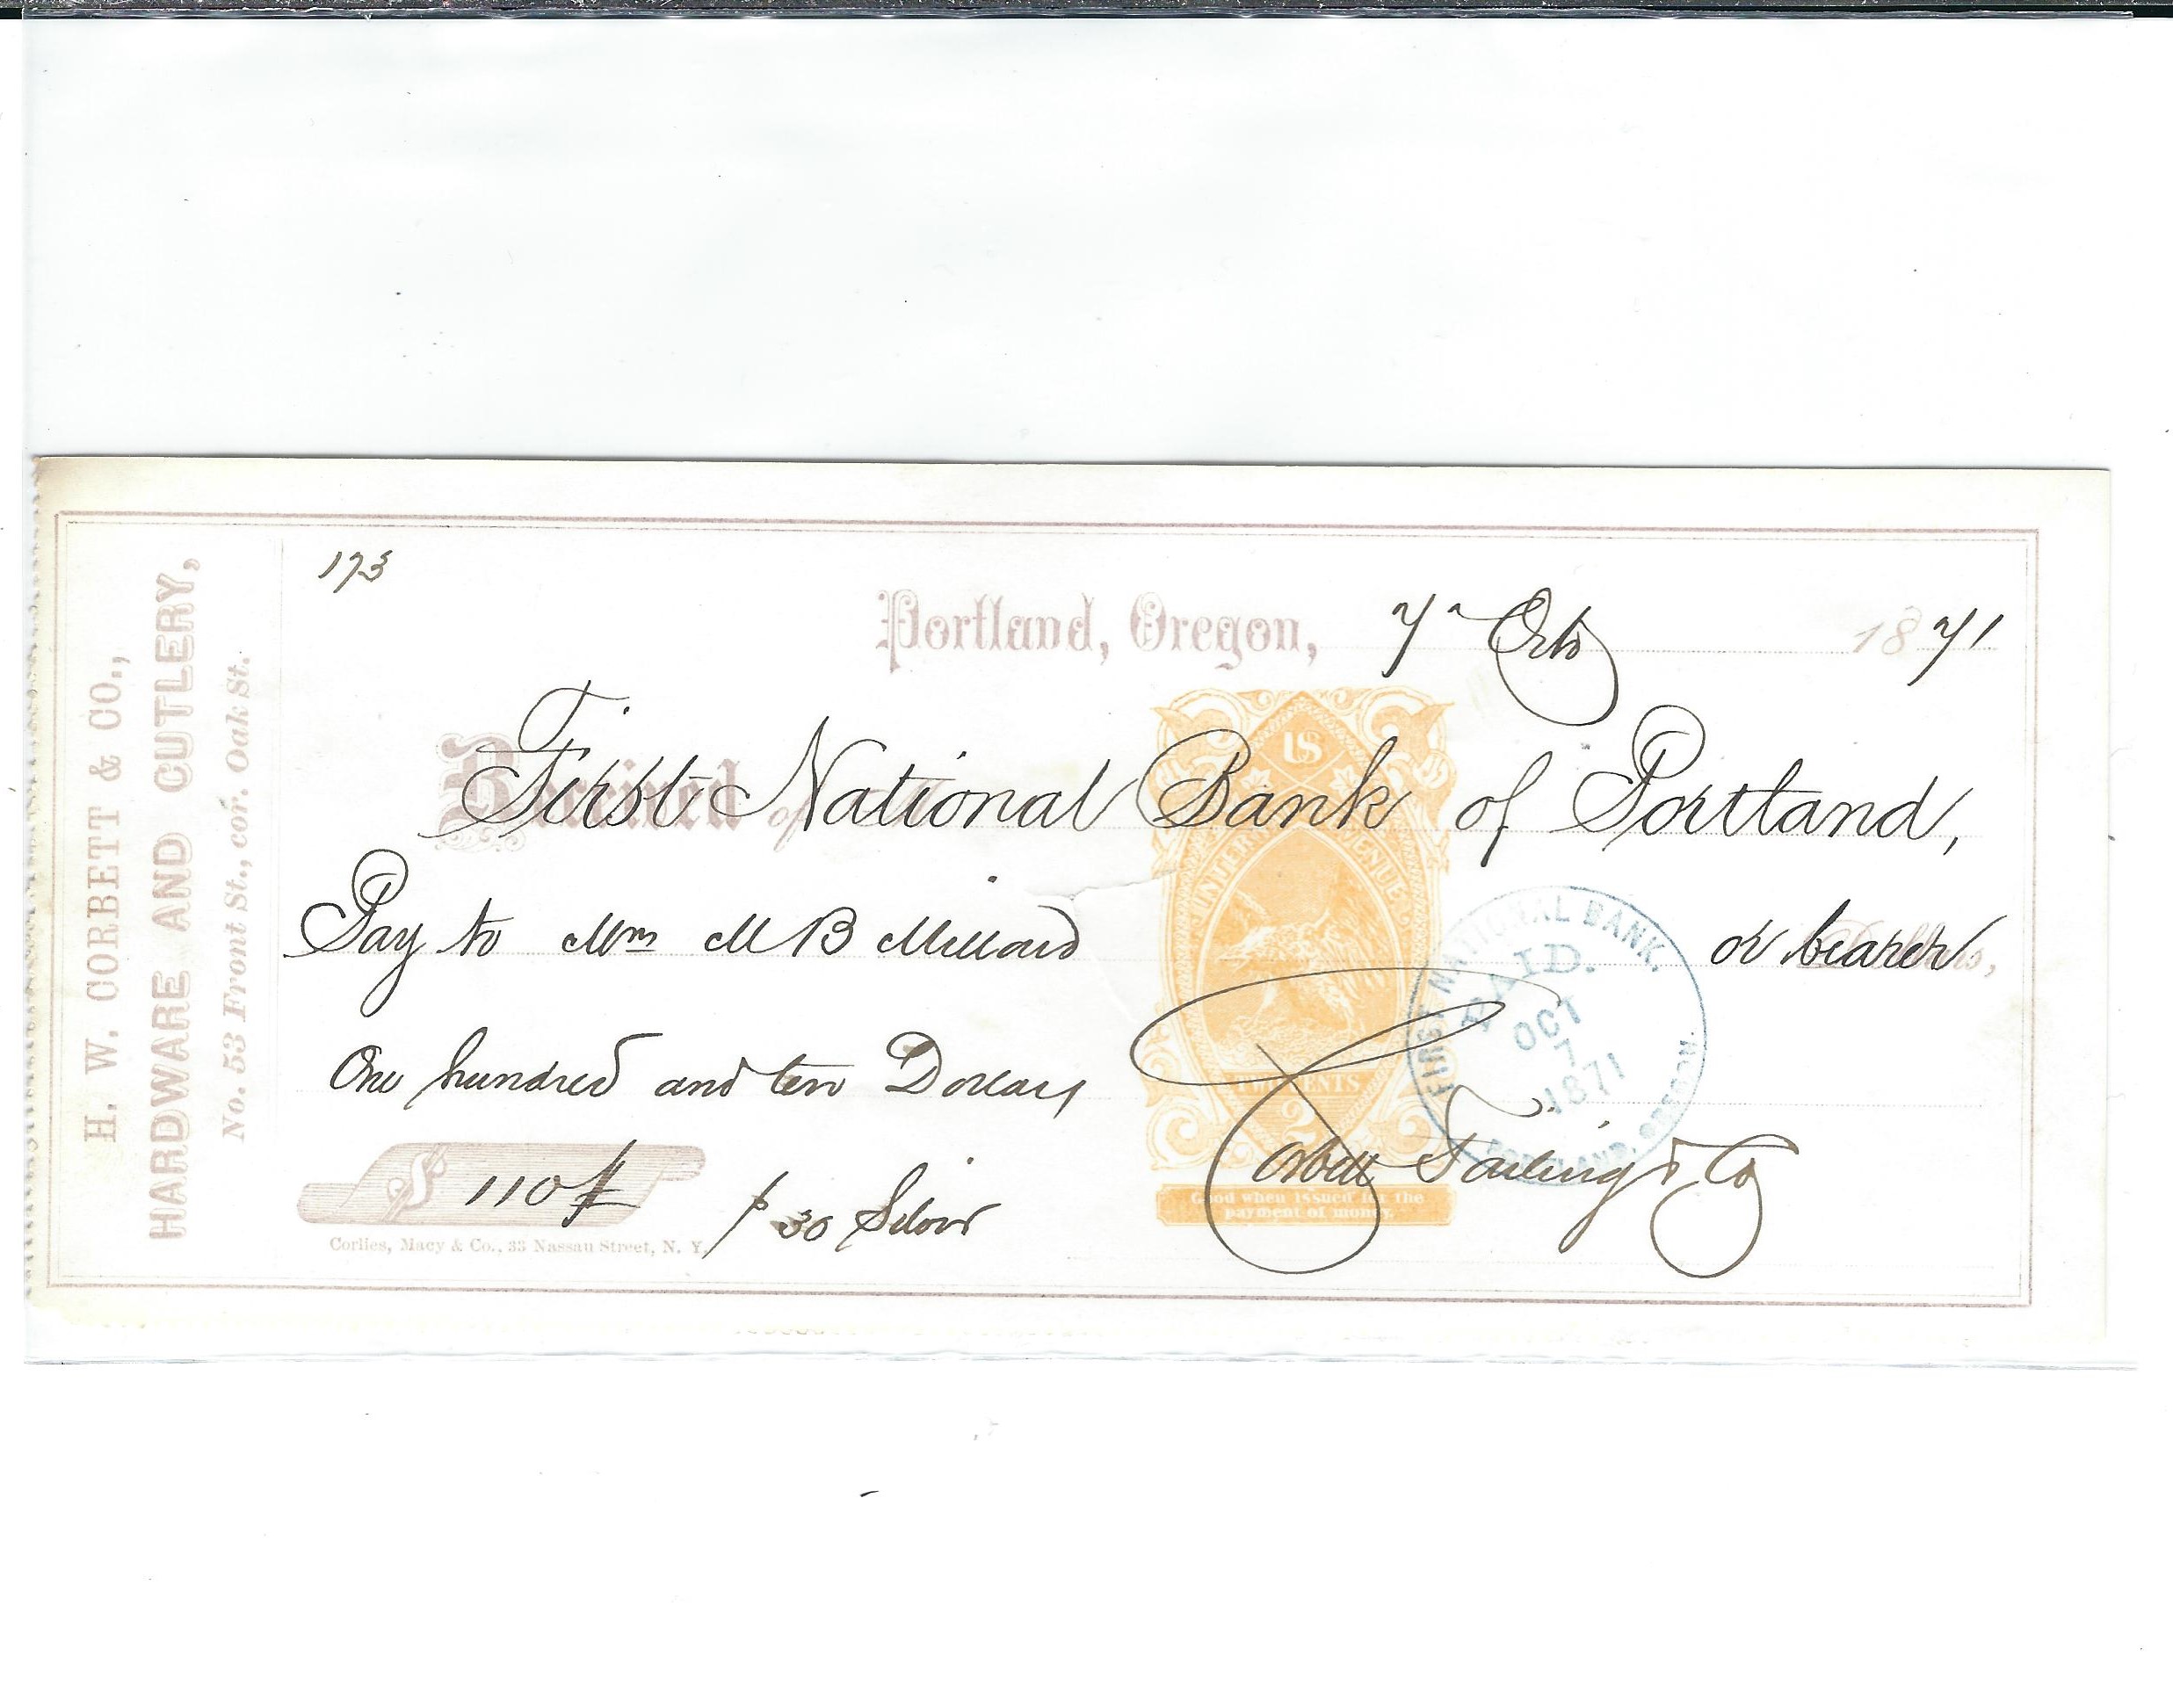 H. W. CORBETT & CO.,
HARDWARE AND CUTLERY,
No. 53 Front St., cor. Oak St.
173
Portland, Oregon, 7th Octo 1871
Received of
First National Bank of Portland,
Pay to M B Millard or bearer
Dollars,
One hundred and ten Dollars
$ 110
$ 30 Silver
Corlies, Macy & Co., 33 Nassau Street, N. Y.
Corbett Failing & Co
US
INTERNAL REVENUE
TWO CENTS
2
Good when issued for the
payment of money.
FIRST NATIONAL BANK.
PAID.
OCT
7
1871
PORTLAND, OREGON.